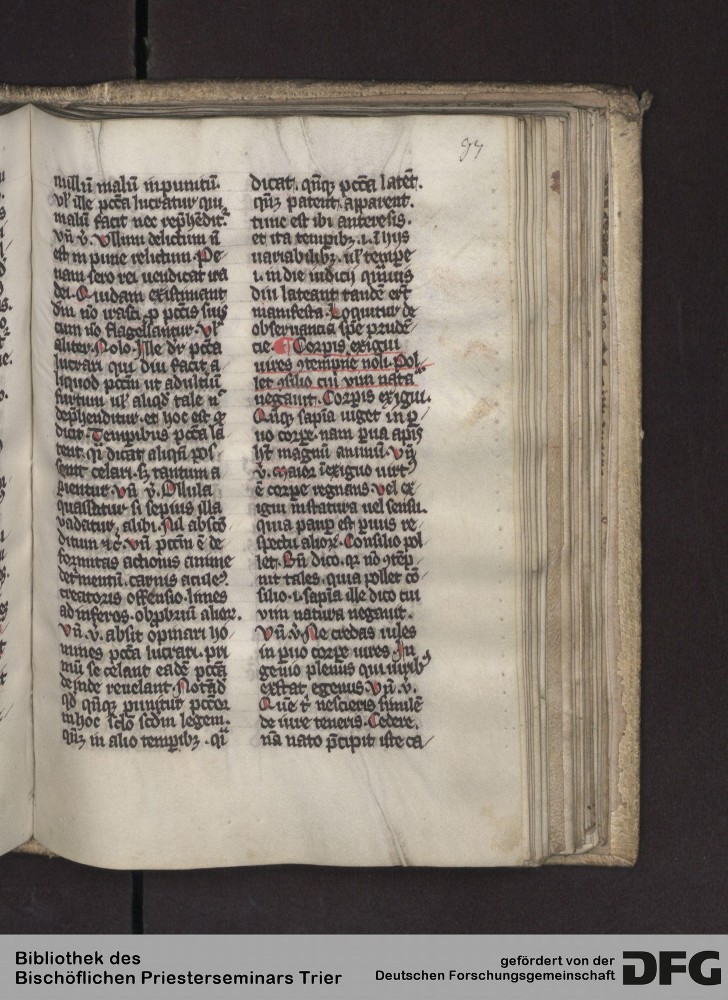 97
nullū malū inpunitū.
vl' ille pccā lucratur qui
malū facit nec rephēdit̄.
Vn̄ v̄. Vllum delictum n̄
est in pune relictum. Pe
nam sero rei uendicat ira
dei. Quidam existimant
diu nō irasci p pccīs suis
cum nō flagellantur. Vl'
aliter. Nolo. Ille dr̄ pccā
lucrari qui diu facit a
liquod pccm̄ ut adultiū
furtum ul' aliqd tale n̄
dephenditur. et hoc est qd
dicit. Temporibus pccā la
tent. qi dicat aliqā pos
sunt celari. sȝ tantum a
perientur. Vn̄ v̄. Ollula
quassatur si sepius illa
vadatur, alibi. Nil absco
ditum ⁊c̄. Vn̄ pccm̄ ē de
formitas actionis anime
detrimentū. carnis acule⁹.
creatoris offensio. limes
ad inferos. obprobriū alior.
Vn̄. v̄. absit opinari ho
mines pccā lucrari. pri
mū se celant eadē pccā
deinde reuelant. Notād
qd qn̄qȝ punitur pccor
in hoc sclo scdm legem.
qn̄qȝ in alio temporibȝ. qi
dicat. qn̄qȝ pccā latēt.
qn̄qȝ patent. apparent.
tunc est ibi anteresis.
et ita temporibȝ. i. ī hijs
uariabilibȝ. ul' tempore
i. in die iudicij quiuis
diu lateant tandē erūt
manifesta. Loquitur de
obseruancia spe prudē
cie. ¶ Corporis exigui
uires ꝯtempnere noli. Pol
let ꝯsilio cui vim natā
negauit. Corporis exigui.
Qn̄qȝ sapia uiget in p
uo corpore. nam pua apis
ht magnū animū. Vn̄
v̄. maior ī exiguo uirt⁹
ē corpore regnans. vel ex
igui in statura uel sensu.
quia paup est puus re
spectu alior. Consilio pol
let. Bn̄ dico. qr nō ꝯtēp
nit tales. quia pollet cō
silio. i. sapia ille dico cui
vim natura negauit.
Vn̄ v̄ Ne credas uiles
in puo corpore uires. In
genio plenus qui uirib⁹
exstat egenus. Vn̄. v̄.
de iure teneris. Cedere.
nā nato pcipit iste ca
Bibliothek des
Bischöflichen Priesterseminars Trier
gefördert von der
Deutschen Forschungsgemeinschaft
DFG